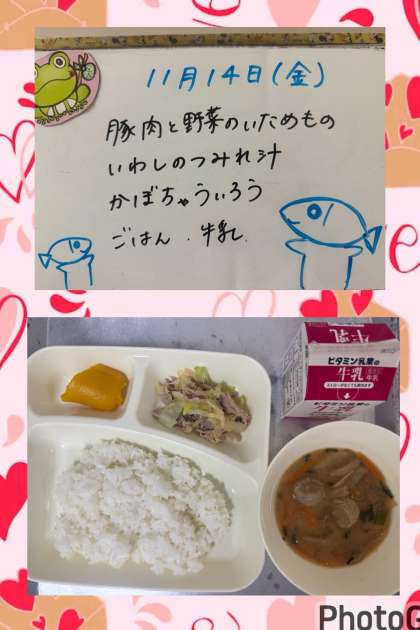 11月14日(金)
豚肉と野菜のいためもの
いわしのつみれ汁
かぼちゃういろう
ごはん．牛乳．
牛乳
ビタミン乳業の
牛乳
ビタミン乳業の
牛乳
PhotoG